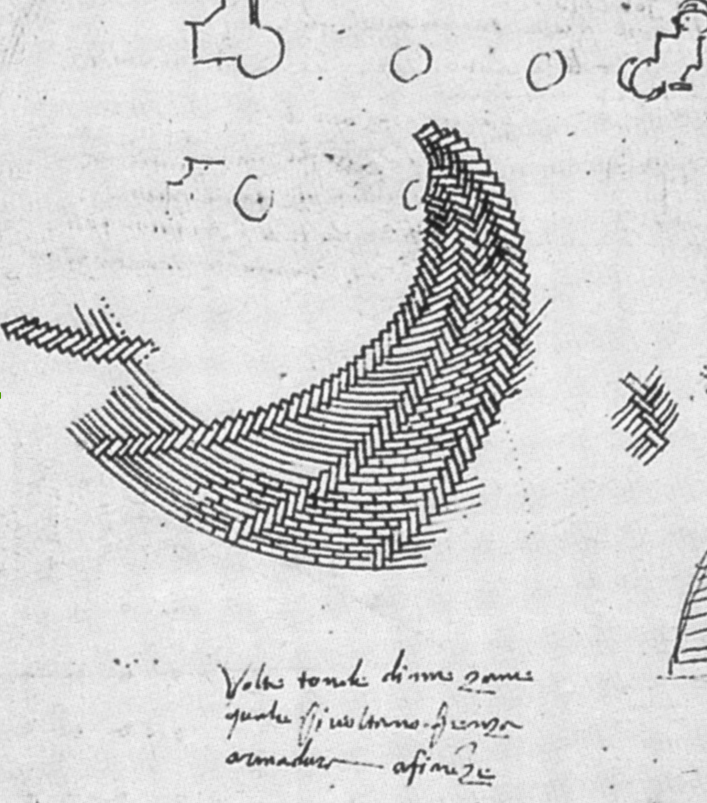 Volte tonde di mezane
quale si voltano senza
armadura afirēze